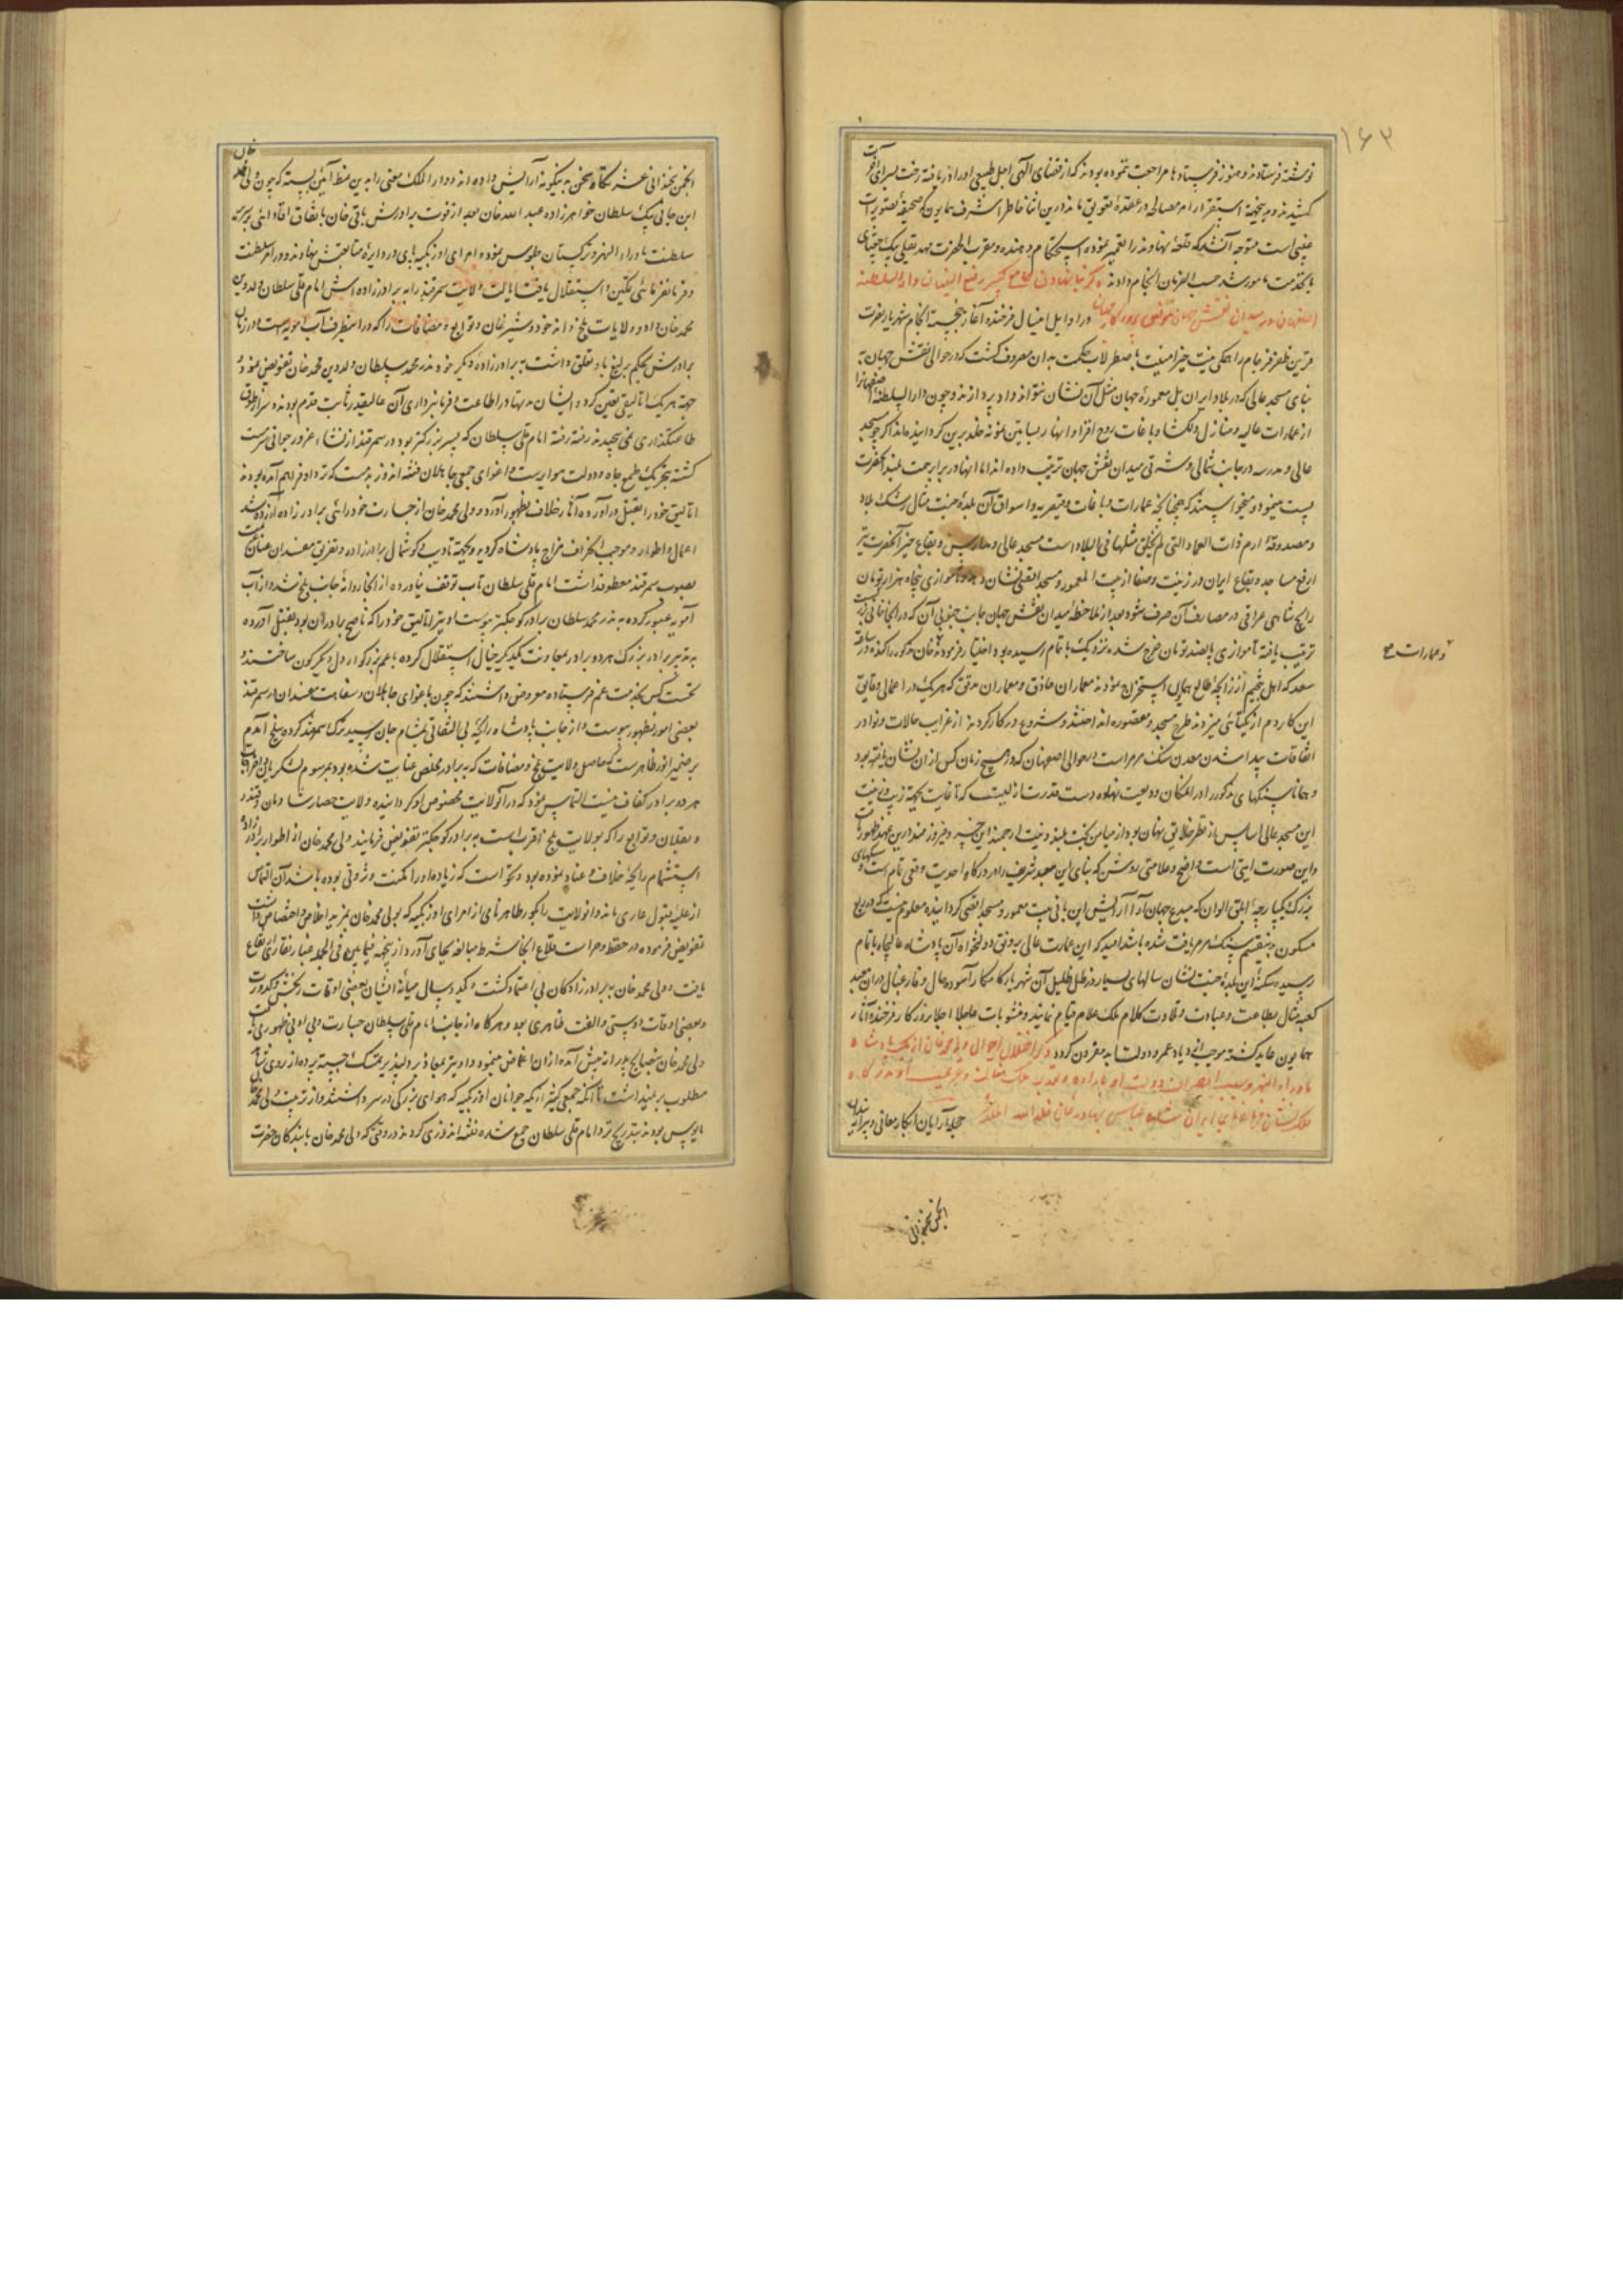 ۱۶۳
نوشته فرستادند و هنوز فرستادها مراجعت ننموده بودند که از قضای الهی اجل طبیعی او را دریافته رخت بسرای آخرت
کشیدند و بجهة استقرار امر مصالحه در عقدهٔ تعویق ماند درین اثنا خاطر اشرف همایون که صحیفهٔ تصویرات
غیبی است متوجه آن شد که قلعهٔ نهاوند را تعمیر نموده استحکام دهند و مقرب الحضرت مهدیقلی بیک چغتای
باینخدمت مامور شد حسب الفرمان انجام دادند ذکر بنا نهادن جامع کبیر رفیع البنیان دار السلطنه
اصفهان در میدان نقش جهان در اوایل اینسال فرخنده آغاز خجسته انجام شهریار نصرت
قرین ظفر فرجام را همگی نیت خیر امنیت باصطرلاب حکمت بدان مصروف گشت که در حوالی نقش جهان
بنای مسجد عالی که در بلاد ایران بل معمورهٔ جهان مثل آن نشان نتوانند داد پردازند و چون دار السلطنهٔ اصفهانرا
از عمارات عالیه و منازل دلگشا و باغات روح افزا و انهار بساتین نمونهٔ خلد برین گردانیده‌اند اگرچه مسجد
عالی و مدرسه در جانب شمالی و شرقی میدان نقش جهان ترتیب داده اند اما آنها در برابر همت بلند آنحضرت
پست مینمود و میخواستند که چنانچه عمارات و باغات و قیصریه و اسواق آن بلدهٔ جنت مثال رشک بلاد
و مصدوقهٔ ارم ذات العماد التی لم یخلق مثلها فی البلاد است مسجد عالی و مدارس و بقاع خیر آنحضرت نیز
ارفع مساجد و بقاع ایران در زینت و صفا از بیت المعمور و مسجد اقصی نشان دهد و موازی پنجاه هزار تومان
رایج شاهی عراقی در مصارف آن صرف شود بعد از ملاحظهٔ میدان نقش جهان جانب جنوبی آن که در آنجا خانی
ترتیب یافته تا موازی پانصد تومان خرج شده نزدیک باتمام رسیده بود اختیار فرمودند خان مذکور را کنده در ساعت
و عمارات
سعد که اهل تنجیم از زایچهٔ طالع همایون استخراج نمودند معماران حاذق و معماران مدقق که هر یک در اعمال دقایق
این کار دم از یکتائی میزدند طرح مسجد و مقصوره انداختند و شروع در کار کردند از غرایب حالات و نوادر
اتفاقات پیدا شدن معدن سنگ مرمر است در حوالی اصفهان که در هیچ زمان کس از آن نشان نیافته بود
و همانا سنگهای مذکور را در المکان ودیعت نهاده دست قدرت ازلیست که تا غایت بجهة زیب و زینت
این مسجد عالی اساس از نظر خلایق پنهان بود از میامن بخت بلند و نیت ارجمند این خسرو فیروزمند درین عهد بظهور
و این صورت آیتی است واضح و علامتی روشن که بنای این معبد شریف را در درگاه احدیت وقعی تام است و سنگهای
بزرگ یکپارچهٔ ابلق الوان که مبدع جهان آرا آرایش این ثانی بیت معمور و مسجد اقصی گردانیده معلوم نیست که در ربع
مسکون بدینقسم سنگ مرمر یافت شده باشد امید که این عمارت عالی بر وفق دلخواه آن پادشاه عالیجاه باتمام
رسیده سکنهٔ این بلدهٔ جنت نشان سالهای بسیار در ظل ظلیل آن شهریار کامکار آسوده حال و فارغبال در آن معبد
کعبه مثال بطاعت و عبادت و تلاوت کلام ملک علام قیام نمایند و مثوبات عاجلا و اجلا بروزگار فرخنده آثار
همایون عاید گشته موجب ازدیاد عمر و دولت ابد مقرون گردد ذکر اختلال احوال ولی محمد خان ازبک پادشاه
ماوراء النهر و سبب انصراف دولت او بدرگاه
ملک نشان فرمانفرمای ایران شاه عباس بهادر خان خلد الله
انجمن سخندانی
انجمن سخندانی عشرتگاه سخن به نیگونه آرایش داده‌اند و دار الملک معنی را بدین نمط آئین بسته که چون ولی محمد خان
ابن جانی بیک سلطان خواهرزاده عبد الله خان بعد از فوت برادرش باقی خان باتفاق بر سریر
سلطنت ماوراء النهر و ترکستان جلوس نموده امرای اوزبکیه پای در دایرهٔ متابعتش نهادند و در امر سلطنت
و فرمانفرمائی تمکین و استقلال یافت ایالت ولایت سمرقند را به برادرزاده اش امام قلی سلطان ولد دین
محمد خان داد و ولایات بلخ و اندخود و شبرغان و توابع و مضافات را که در اینطرف آب امویه است و در زمان
برادرش بحکم یرلیغ باو تعلق داشت به برادرزادهٔ دیگر خود ندر محمد سلطان ولد دین محمد خان تفویض نمود
جهة هر یک اتالیقی تعین کرده ایشان مدتها در اطاعت و فرمانبرداری آن عالیقدر ثابت قدم بودند و سر از طوق
طاعتگذاری نمی پیچیدند رفته رفته امام قلی سلطان که پسر بزرگتر بود در سمرقند از نشاء غرور جوانی سرمست
گشته بتحریک طمع جاه و دولت هوا پرست و اغوای جمعی جاهلان فتنه اندوز بدمست که نزد او فراهم آمده بودند
اتالیق خود را بقتل درآورده آثار خلاف بظهور آورد و ولی محمد خان از جسارت خود رائی برادرزاده آزرده شد
اعمال و اطوار او موجب انحراف مزاج پادشاه گردید و بجهة تادیب و گوشمال برادرزاده و تفریق مفسدان عنان
بصوب سمرقند معطوف داشت امام قلی سلطان تاب توقف نیاورده از آنجا روانهٔ جانب بلخ شد و از آب
آمویه عبور کرده به ندر محمد سلطان برادر کوچکتر پیوست او نیز اتالیق خود را که ناصح برادران بود بقتل آورده
به تدبیر برادر بزرگ هر دو برادر بمعاونت یکدیگر خیال استقلال کرده با عم بزرگوار دل دیگرگون ساختند و
نخست کس بخدمت عم فرستاده معروض داشتند که چون باغوای جاهلان و سفاهت مفسدان در سمرقند
بعضی امور بظهور پیوست و از جانب پادشاه رایحهٔ بی التفاتی بمشام جان رسید ترک سمرقند کرده ببلخ آمدم
بر ضمیر انور ظاهر است که حاصل ولایت بلخ و مضافات که به برادر مخلص عنایت شده بود بمرسوم لشکریان
هر دو برادر کفاف نیست التماس نمود که در آنولایت مخصوص او گردانیده ولایت حصار شادمان و قندوز
و بقلان و توابع را که بولایت بلخ اقرب است به برادر کوچکتر تفویض فرمایند ولی محمد خان از اطوار برادرزاده
استشمام رایحهٔ خلاف و عناد نموده بود و نخواست که زیاده او را مکنت و ثروتی بوده باشد آن التماس
از حلیهٔ قبول عاری ماند و آنولایت را بکور طاهر نامی از امرای اوزبکیه که بولی محمد خان بمزید اخلاص و اختصاص داشت
تفویض فرموده در حفظ و حراست قلاع آنجا شرط مبالغه بجای آورد از ینجهة فیمابین فی الجمله غبار نقاری ارتفاع
یافت و ولی محمد خان به برادرزادگان بی اعتماد گشت و یکدو سال میانهٔ ایشان بعضی اوقات رنجش و کدورت
و بعضی اوقات دوستی و الفت ظاهری بود و هرگاه از جانب امام قلی سلطان جسارت و بی ادبی ظهور می یافت
ولی محمد خان بنصایح پدرانه پیش آمده از آن اغماض مینمود و او نیز بمعاذیر دلپذیر متمسک جسته پرده از روی شاهد
مطلوب بر نمیداشت تا آنکه جمعی کثیر از یکه جوانان اوزبکیه که هوای بزرگی در سر داشتند و از تربیت ولی محمد خان
مایوس بودند بتدریج نزد امام قلی سلطان جمع شده فتنه اندوزی کردند در وقتی که ولی محمد خان با بندگان حضرت